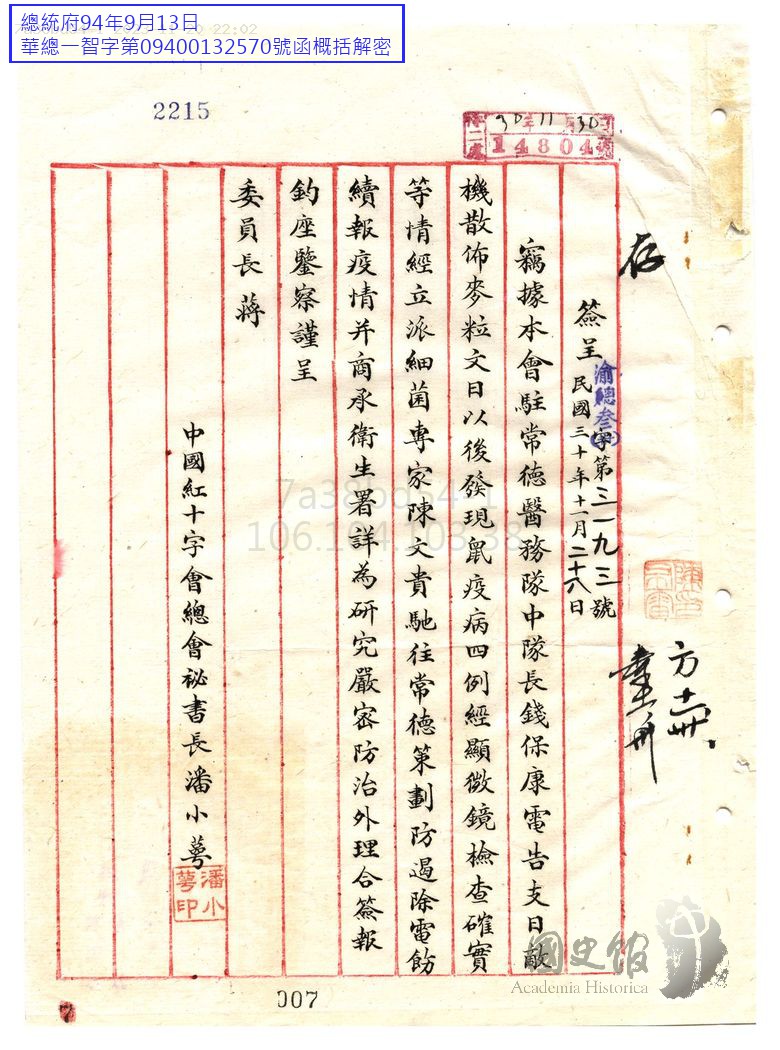 總統府94年9月13日
華總一智字第09400132570號函概括解密
2215
30 11 30
14804
存
簽呈 渝總叁字第三一九三號
民國三十年十一月二十八日
竊據本會駐常德醫務隊中隊長錢保康電告支日敵
機散佈麥粒文日以後發現鼠疫病四例經顯微鏡檢查確實
等情經立派細菌專家陳文貴馳往常德策劃防遏除電飭
續報疫情并商承衛生署詳為研究嚴密防治外理合簽報
鈞座鑒察謹呈
委員長 蔣
中國紅十字會總會祕書長潘小萼
潘小萼印
7a38bd54-1
106.104.103.38
國史館
Academia Historica
007
7